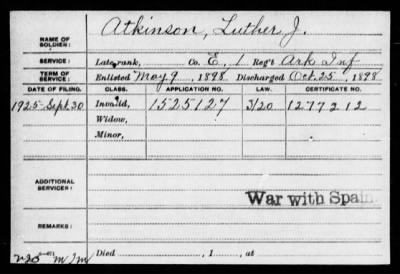 Atkinson, Luther J.
NAME OF SOLDIER:
SERVICE: Late rank, Co. E, 1 Reg't Ark Inf
TERM OF SERVICE: Enlisted May 9, 1898 Discharged Oct. 25, 1898
DATE OF FILING. CLASS. APPLICATION NO. LAW. CERTIFICATE NO.
1925-Sept. 30 Invalid, 1525127 3/20 1277212
Widow,
Minor,
ADDITIONAL SERVICES:
War with Spain
REMARKS:
Died , 1 , at